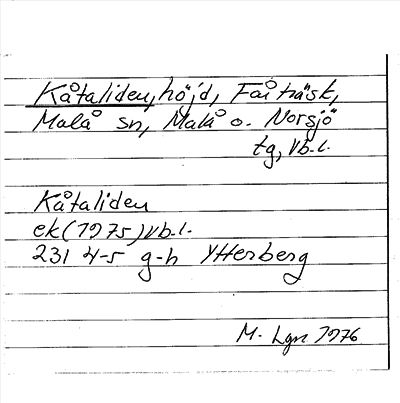 Kåtaliden, höjd, Fårträsk,
Malå sn, Malå o. Norsjö
tg, Vb.l.
Kåtaliden
ek (1975) Vb.l.
231 4-5 g-h Ytterberg
M. Lgn 1976